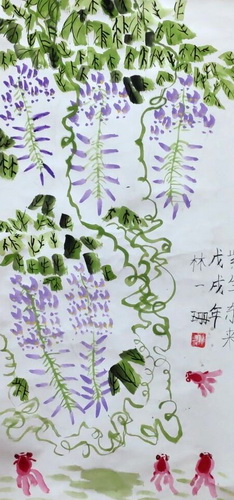 紫气东来
戊戌年
林一珊